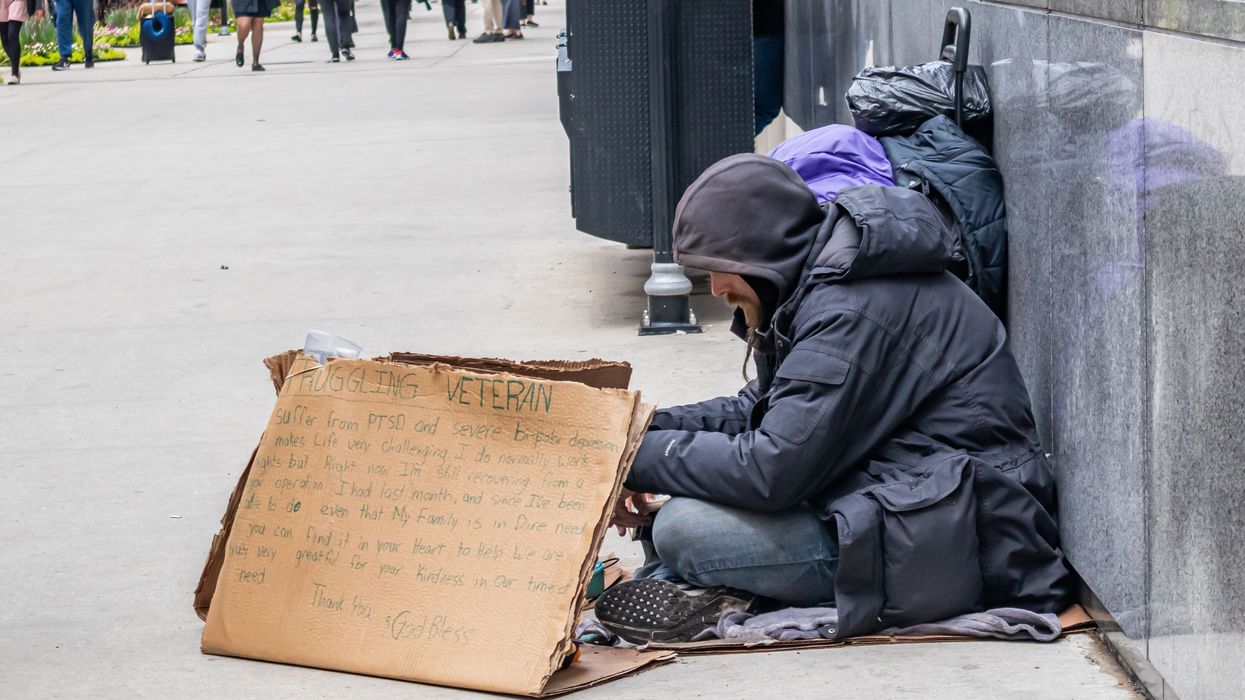 TRUGGLING VETERAN
suffer from PTSD and severe bi-polar depression
makes Life very challenging I do normally work
ights but Right now I'm still recovering from a
operation I had last month, and since I've been
le to do even that My Family is in Dire need
you can find it in your Heart to Help We are
very greatful for your Kindness in Our time of
need
Thank You
God Bless